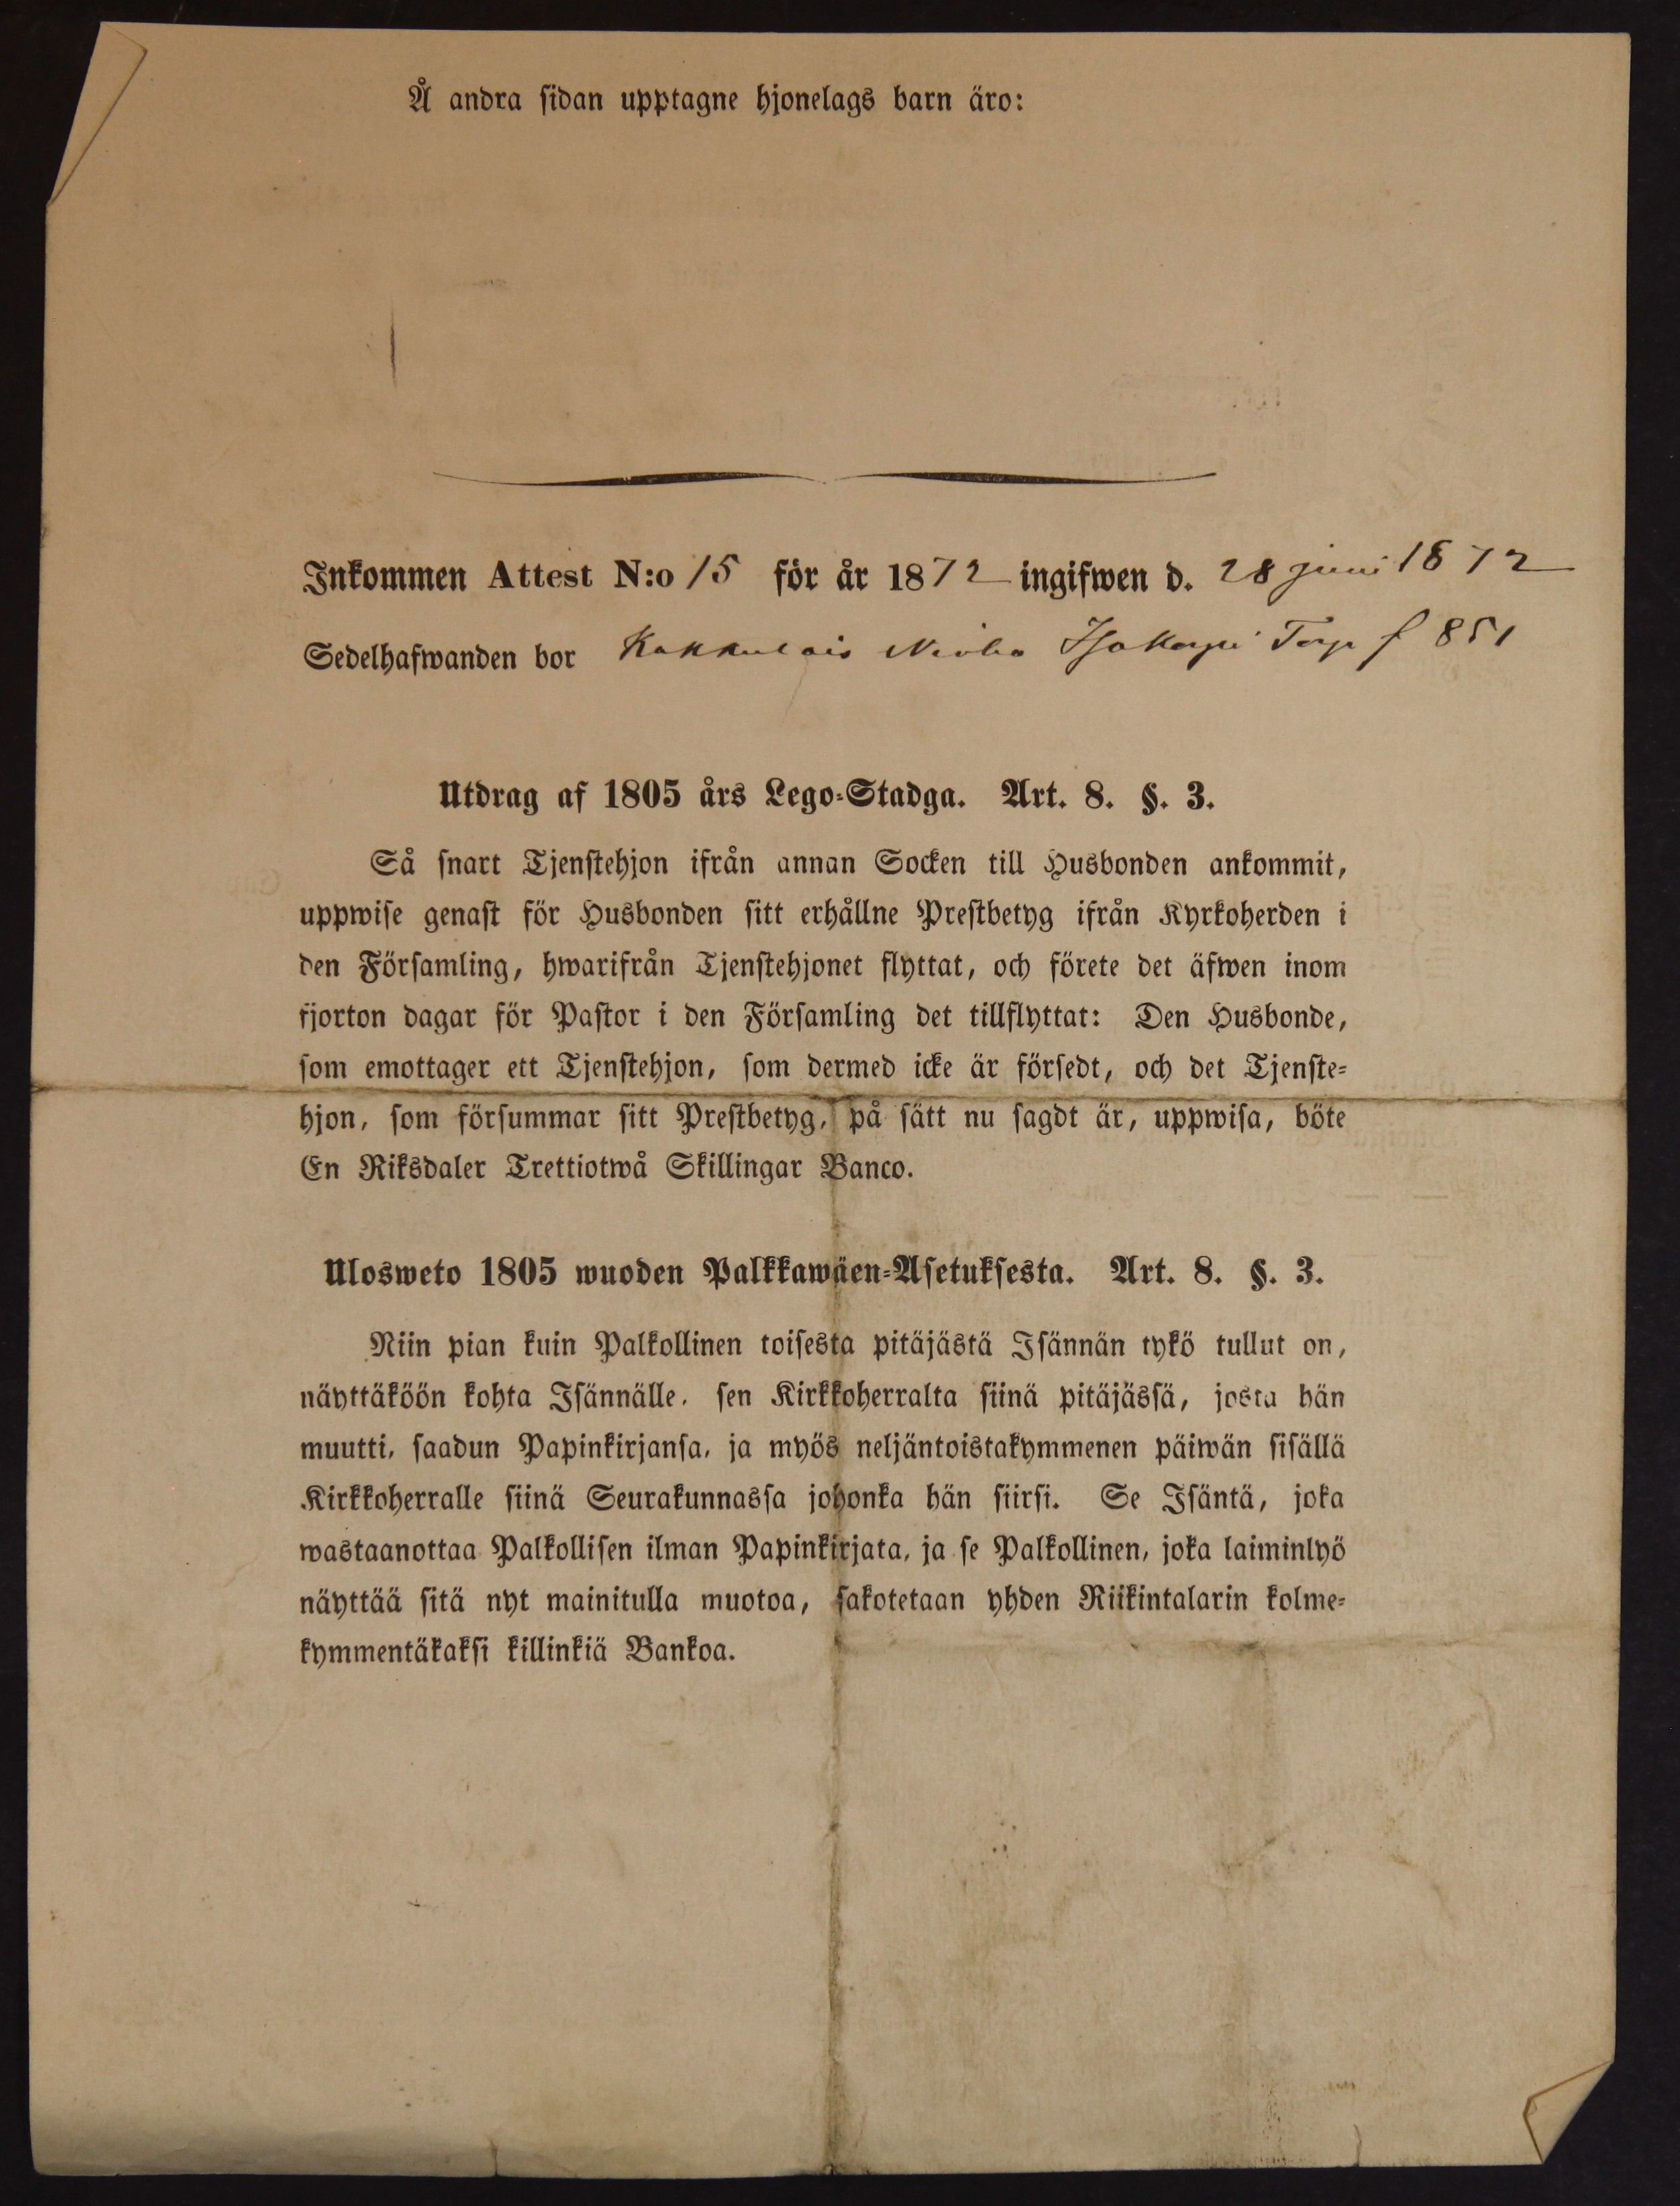 Å andra sidan upptagne hjonelags barn äro:
Inkommen Attest N:o 15 för år 1872 ingifwen d. 28 juni 1872
Sedelhafwanden bor Kakkulais Torp f 851
Utdrag af 1805 års Lego-Stadga. Art. 8. §. 3.
Så snart Tjenstehjon ifrån annan Socken till Husbonden ankommit,
uppwise genast för Husbonden sitt erhållne Prestbetyg ifrån Kyrkoherden i
den Församling, hwarifrån Tjenstehjonet flyttat, och förete det äfwen inom
fjorton dagar för Pastor i den Församling det tillflyttat: Den Husbonde,
som emottager ett Tjenstehjon, som dermed icke är försedt, och det Tjenste-
hjon, som försummar sitt Prestbetyg, på sätt nu sagdt är, uppwisa, böte
En Riksdaler Trettiotwå Skillingar Banco.
Ulosweto 1805 wuoden Palkkawäen-Asetuksesta. Art. 8. §. 3.
Niin pian kuin Palkollinen toisesta pitäjästä Isännän tykö tullut on,
näyttäköön kohta Isännälle, sen Kirkkoherralta siinä pitäjässä, josta hän
muutti, saadun Papinkirjansa, ja myös neljäntoistakymmenen päiwän sisällä
Kirkkoherralle siinä Seurakunnassa johonka hän siirsi. Se Isäntä, joka
wastaanottaa Palkollisen ilman Papinkirjata, ja se Palkollinen, joka laiminlyö
näyttää sitä nyt mainitulla muotoa, sakotetaan yhden Riikintalarin kolme-
kymmentäkaksi killinkiä Bankoa.